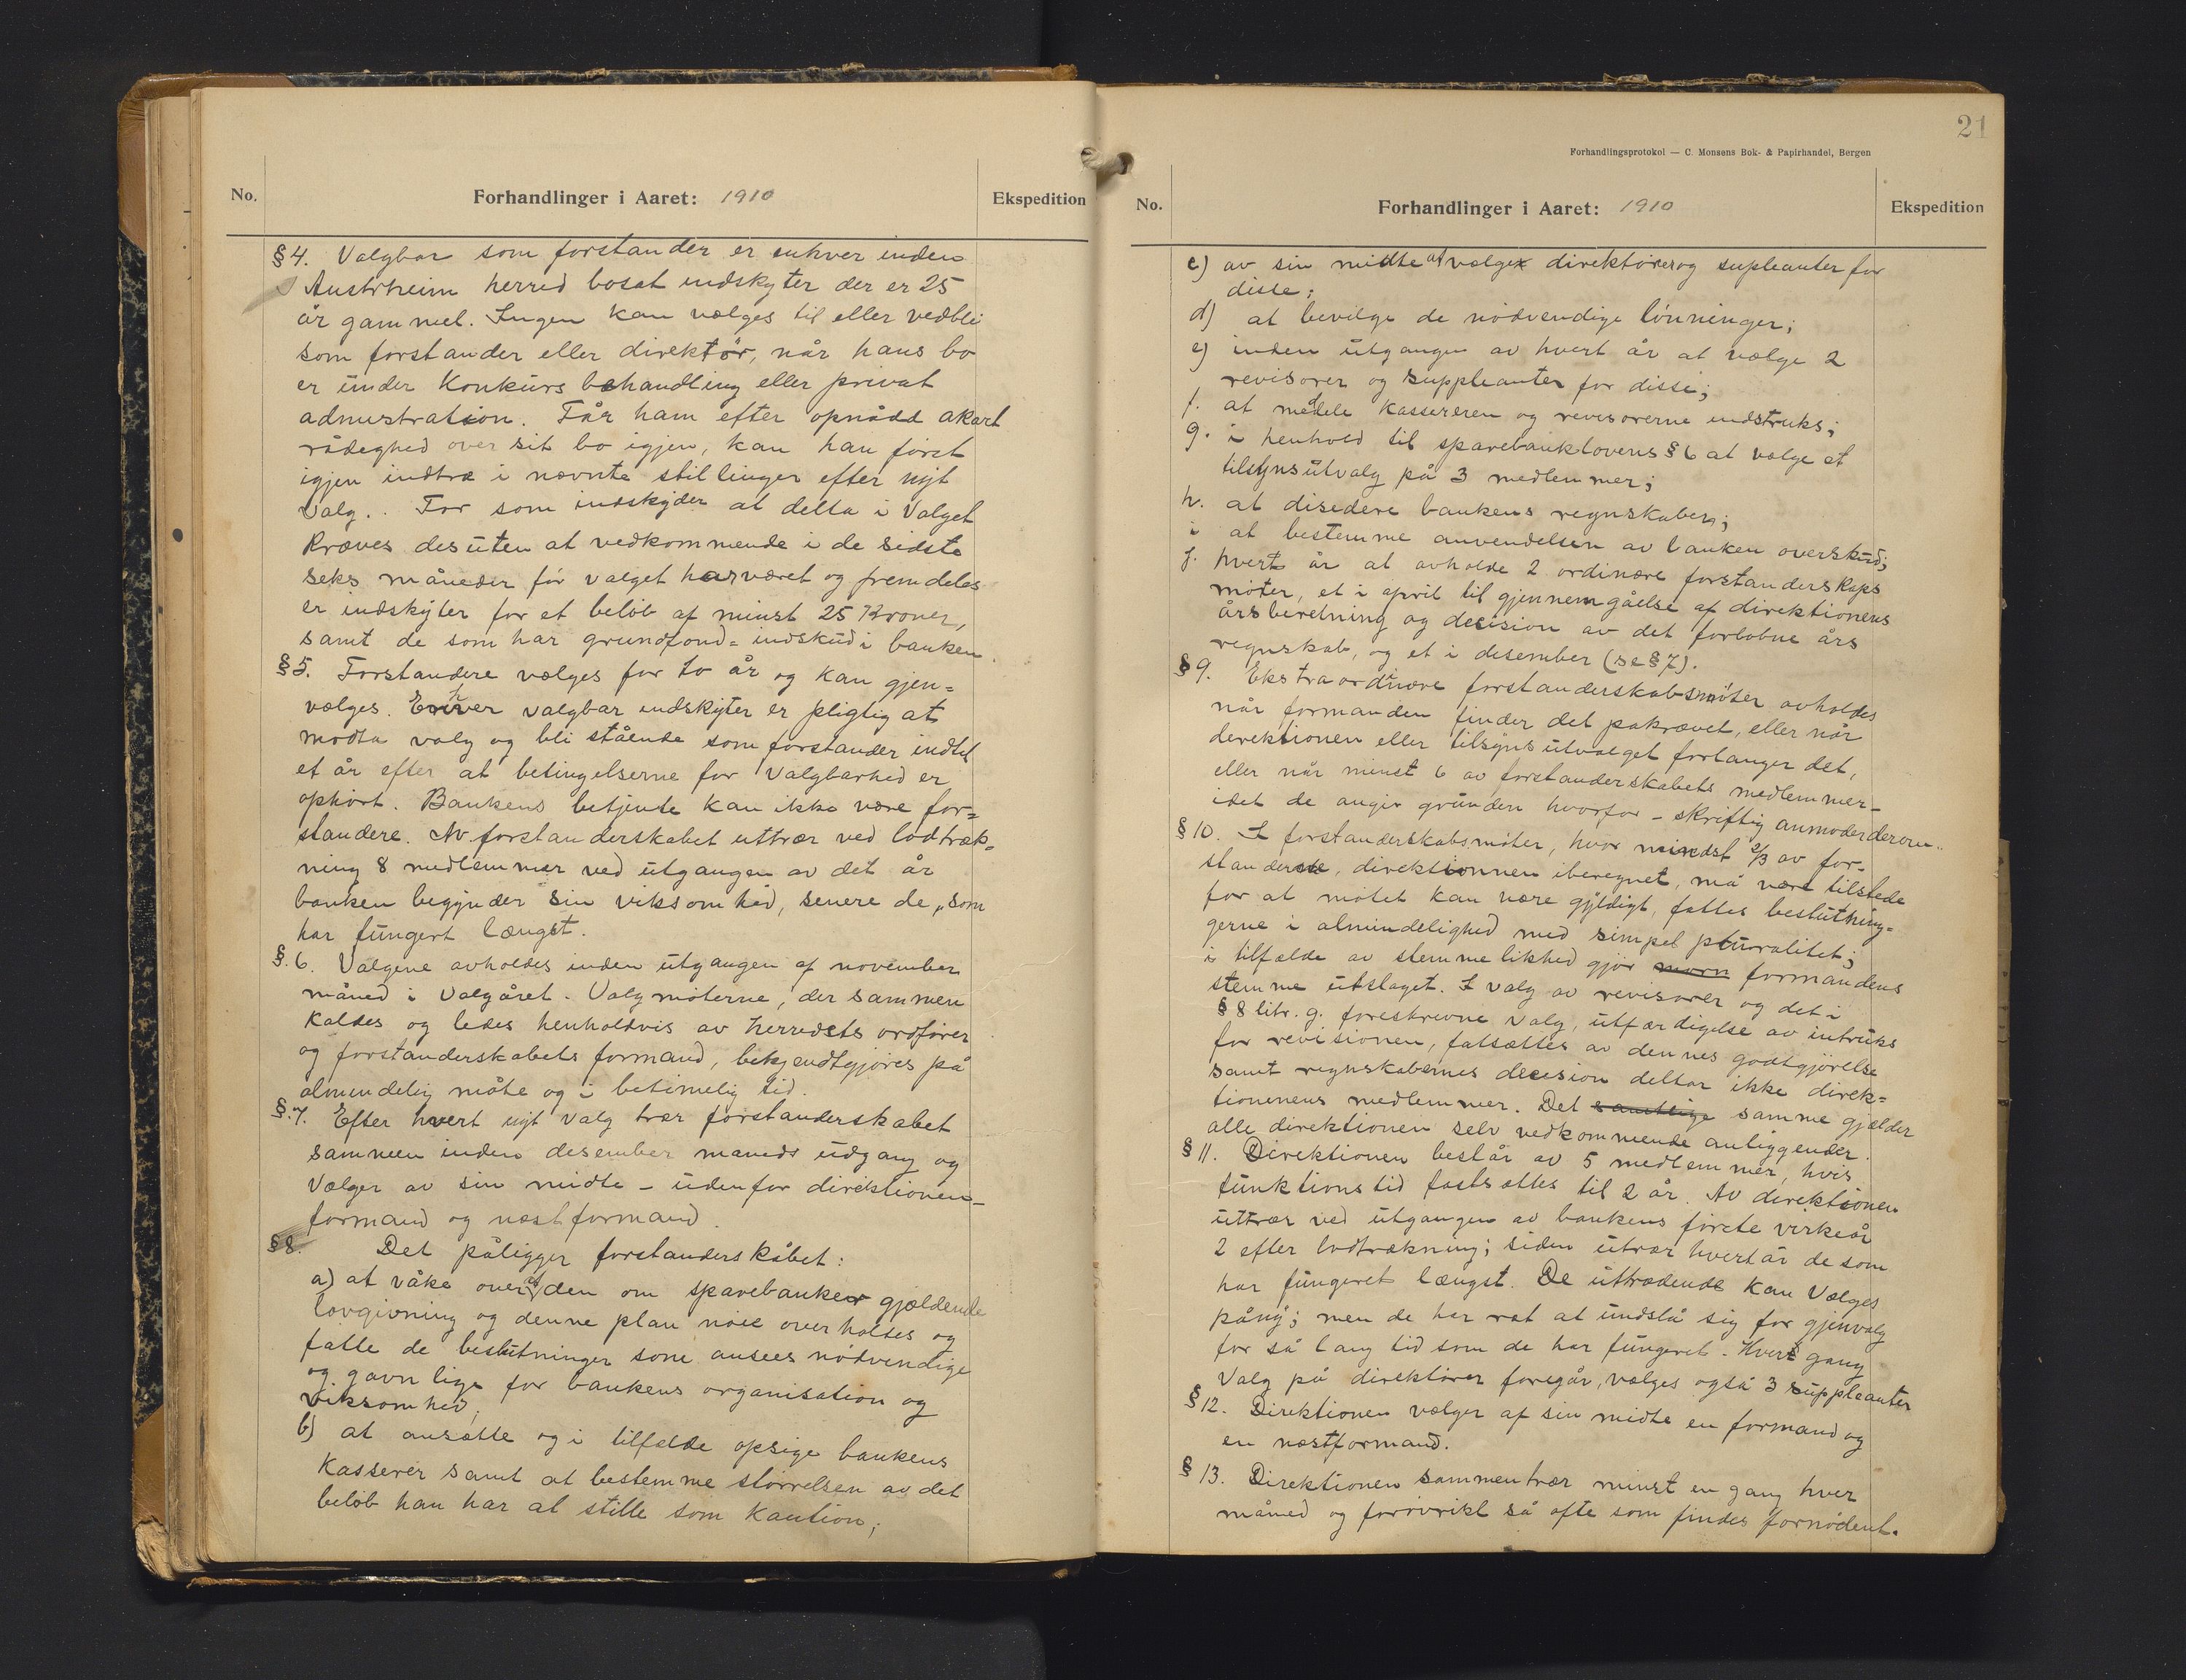 No.
Forhandlinger i Aaret: 1910
Ekspedition
§4. Valgbar som forstander er enhver inden
Austrheim herred bosat indskyter der er 25
år gammel. Ingen kan vælges til eller vedbli
som forstander eller direktör, når hans bo
er under Konkurs behandling eller privat
admistration. Får ham efter opnådd akort
rådeghed over sit bo igjen, kan han först
igjen indtræ i nævnte stillinger efter nyt
valg.. For som indskyder at delta i Valget
kræves desuten at vedkommende i de sidste
seks måneder för valget har været og fremdeles
er indskyter for et belöb af minst 25 Kroner,
samt de som har grundfond= indskud i banken.
§5. Forstandere vælges for to år og kan gjen=
vælges. Enhver valgbar indskyter er pligtig at
modta valg og bli stående som forstander indtil
et år efter at betingelserne for Valgbarhed er
ophört. Bankens betjente kan ikke være for=
standere. Av forstanderskabet uttrær ved lodtræk=
ning 8 medlemmer ved utgangen av det år
banken begynder sin viksomhed, senere de, som
har fungert længst.
§.6. Valgene avholdes inden utgangen af november
måned i Valgåret. Valgmöterne, der sammen
kaldes og ledes henholdvis av herredets ordförer
og forstanderskabets formand, bekjendtgjöres på
almendelig måte og i betimelig tid.
§.7. Efter hvert nyt valg trær forstanderskabet
sammen inden desember maneds udgang og
Vælger av sin midte – udenfor direktionen –
formand og næstformand.
§8. Det påligger forstanderskabet:
a) at våke over at den om sparebanker gjældende
lovgivning og denne plan nöie overholdes og
fatte de beslutninger som ansees nödvendige
og gavnlige for bankens organisation og
viksomhed;
b) at ansætte og i tilfælde opsige bankens
Kasserer samt at bestemme störrelsen av det
belöb han har at stille som Kaution;
21
Forhandlingsprotokol — C. Monsens Bok- & Papirhandel, Bergen
No.
Forhandlinger i Aaret: 1910
Ekspedition
c) av sin midte at vælge direktörer og supleanter for
disse;
d) at bevilge de nödvendige lönninger;
e) inden utgangen av hvert år at vælge 2
revisorer og suppleanter for disse;
f. at meddele kassereren og revisorerne indstruks;
g. i henhold til sparebanklovens § 6 at vælge et
tilsynsutvalg på 3 medlemmer;
h. at disedere bankens regnskaber;
i at bestemme anvendelsen av banken overskud;
j. hvert år at avholde 2 ordinære forstanderskaps
möter, et i april til gjennemgåelse af direktionens
årsberetning og decision av det forlöbne års
regnskab, og et i desember (se § 7).
§ 9. Ekstraordinære forstanderskabsmöter avholdes
når formanden finder det pakrævet, eller når
derektionen eller tilsynsutvalget forlanger det,
eller når minst 6 av forstanderskabets medlemmer –
idet de angir grunden hvorfor – skriftig anmoder derom.
§ 10. I forstanderskabsmöter, hvor mindst 2/3 av for-
standerne, direktionnen iberegnet, må være tilstede
for at mötet kan være gyldigt, fattes beslutnin=
gerne i almindelighed med simpel pluralitet;
i tilfælde av stemmelikhed gjör morn formandens
stemme utslaget. I valg av revisorer og det i
§ 8 litr. g. foreskrevne valg, utfærdigelse av intruks
for revisionen, fatsættes av dennes godtgjörelse
samt regnskabernes decesion deltar ikke direk=
tionenens medlemmer. Det samtlige samme gjælder
alle direktionen selv vedkommende anliggender.
§ 11. Direktionen består av 5 medlemmer, hvis
funktionstid fastsættes til 2 år. Av direktionen
uttrær ved utgangen av bankens förste virkeår
2 efter lodtrækning; siden utrær hvert år de som
har fungeret længst. De uttrædende kan Vælges
påny; men de har ret at undslå sig for gjenvalg
for så lang tid som de har fungeret. Hvert gang
Valg på direktörer foregår, vælges også 3 suppleanter
§ 12. Direktionen vælger af sin midte en formand og
en næstformand.
§ 13. Direktionen sammentrær minst en gang hver
måned og forövrikt så ofte som findes fornödent.